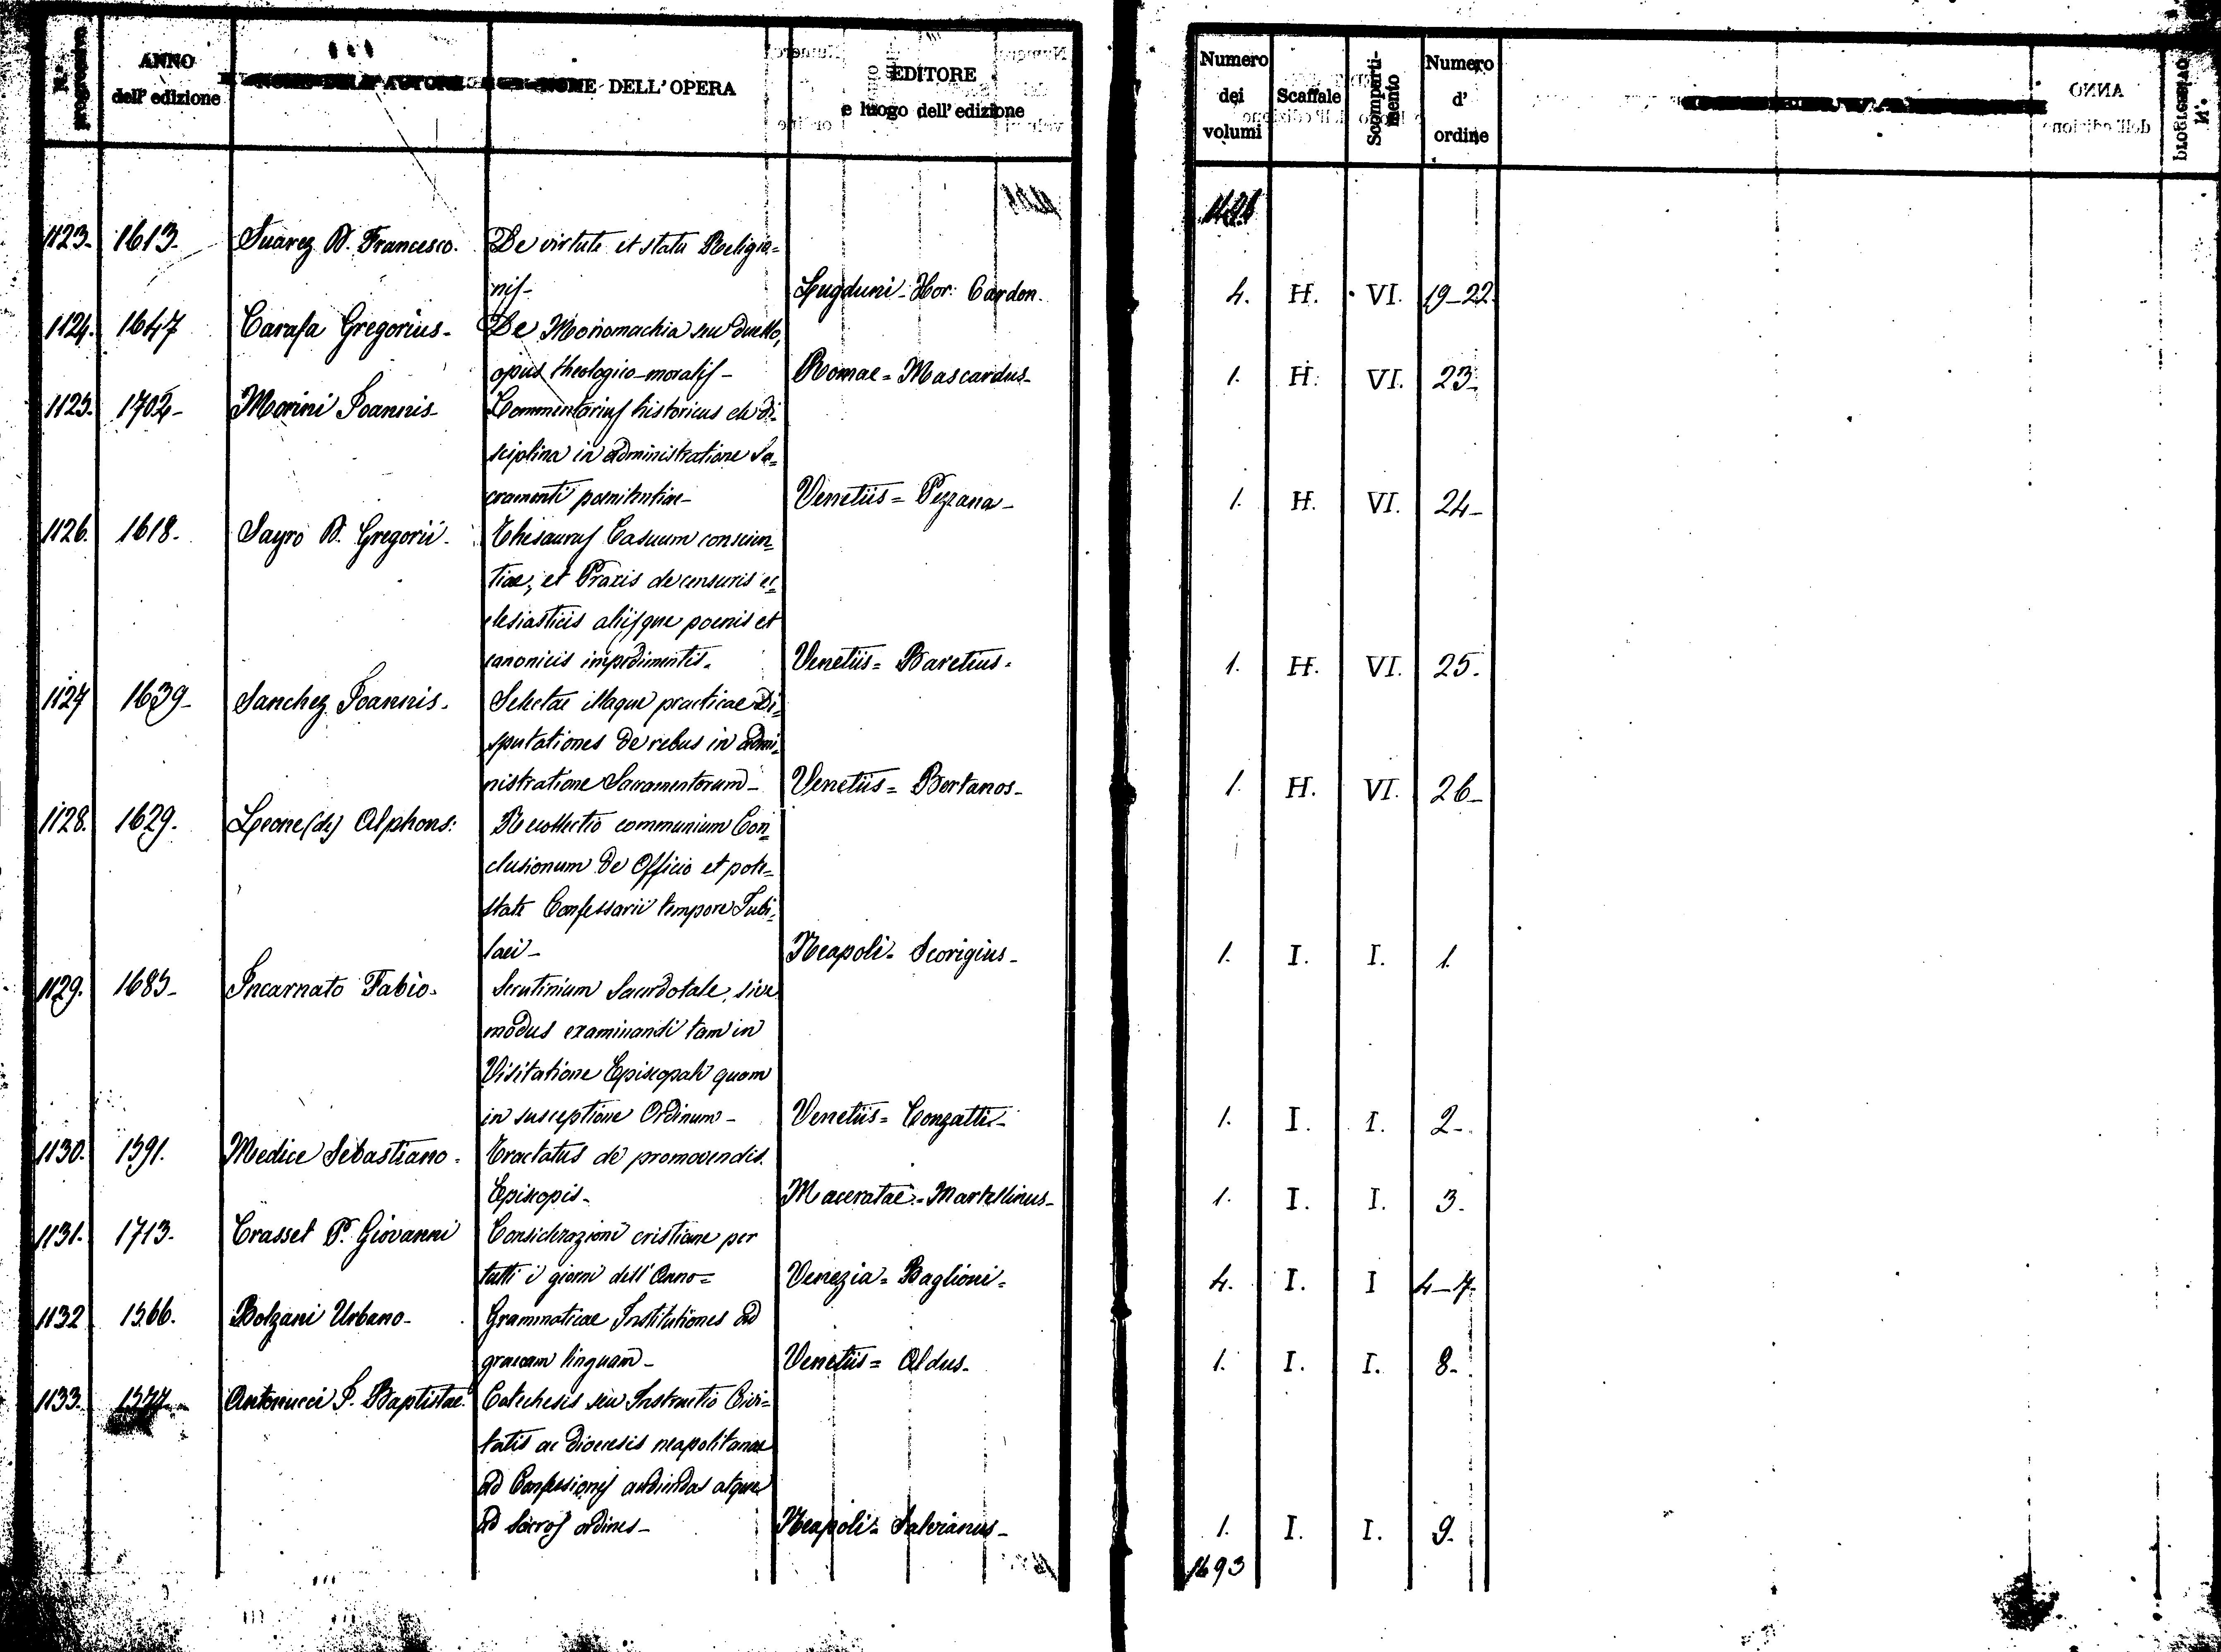 N. progressivo
ANNO dell' edizione
NOME DELL' OPERA
EDITORE e luogo dell' edizione
Numero dei volumi
Scaffale
Scomparti-mento
Numero d' ordine
1123. 1613. Suarez P. Francesco. De virtute et statu Religio=
nis- Lugduni- Hor: Cardon. 4. H. VI. 19-22.
1124. 1647 Carafa Gregorius- De Monomachia seu duello,
opus theologico-moralis- Romae= Mascardus- 1. H. VI. 23.
1125. 1702- Morini Joannis- Commentarius historicus de di=
sciplina in administratione Sa=
cramenti poenitentiae- Venetiis= Pezzana- 1. H. VI. 24-
1126. 1618. Sayro P. Gregorii- Thesaurus Casuum conscien=
tiae, et Praxis de censuris ec=
clesiasticis aliisque poenis et
canonicis impedimentis. Venetiis= Baretius. 1. H. VI. 25.
1127 1639- Sanchez Joannis. Selectae illaque practicae Di=
sputationes de rebus in admi=
nistratione Sacramentorum- Venetiis= Bertanos- 1. H. VI. 26-
1128. 1629. Leone (de) Alphons: Recollectio communium Con=
clusionum de Officio et pote=
state Confessarii tempore Jubi=
laei- Neapoli= Scorigius- 1. I. I. 1.
1129. 1685- Incarnato Fabio. Scrutinium Sacerdotale, sive
modus examinandi tam in
Visitatione Episcopali quam
in susceptione Ordinum- Venetiis= Conzatti- 1. I. I. 2-
1130. 1591. Medice Sebastiano. Tractatus de promovendis
Episcopis- Maceratae= Martellinus- 1. I. I. 3.
1131. 1713. Crasset P. Giovanni Considerazioni cristiane per
tutti i giorni dell'Anno= Venezia= Baglioni= 4. I. I 4-7.
1132 1566. Bolzani Urbano- Grammaticae Institutiones ad
graecam linguam- Venetiis= Aldus- 1. I. I. 8-
1133. 1577. Antonucci J. Baptistae. Catechesis seu Instructio Civi=
tatis ac dioecesis neapolitanae
ad Confessiones audiendas atque
ad sacros ordines- Neapoli= Salvianus- 1. I. I. 9.
1693